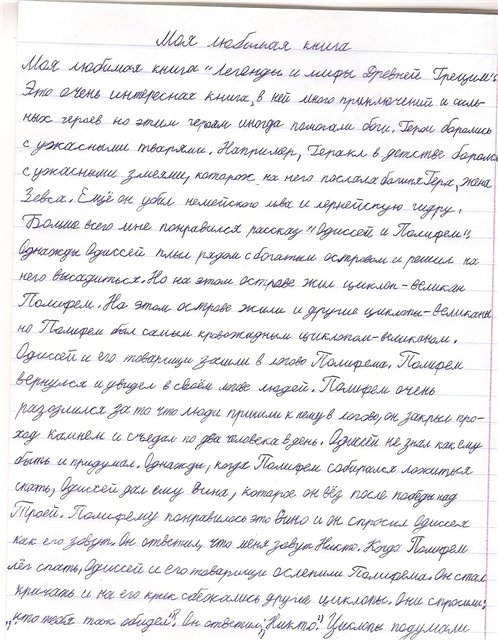 Моя любимая книга
Моя любимая книга "Легенды и мифы Древней Греции".
Это очень интересная книга, в ней много приключений и силь-
ных героев но этим героям иногда помогали боги. Герои боролись
с ужасными тварями. Например, Геракл в детстве боролся
с ужасными змеями, которых на него послала богиня Гера, жена
Зевса. Ещё он убил немейского льва и лернейскую гидру.
Больше всего мне понравился рассказ "Одиссей и Полифем".
Однажды Одиссей плыл рядом с богатым островом и решил на
него высадиться. Но на этом острове жил циклоп-великан
Полифем. На этом острове жили и другие циклопы-великаны
но Полифем был самым кровожадным циклопом-великаном.
Одиссей и его товарищи зашли в логово Полифема. Полифем
вернулся и увидел в своём логове людей. Полифем очень
разозлился за то что люди пришли к нему в логово, он закрыл про-
ход камнем и съедал по два человека в день. Одиссей не знал как ему
быть и придумал. Однажды, когда Полифем собирался ложиться
спать, Одиссей дал ему вина, которое он вёз после победы над
Троей. Полифему понравилось это вино и он спросил Одиссея
как его зовут. Он ответил, что меня зовут Никто. Когда Полифем
лёг спать, Одиссей и его товарищи ослепили Полифема. Он стал
кричать и на его крик сбежались другие циклопы. Они спросили:
„кто тебя так обидел"? Он ответил „Никто." Циклопы подумали